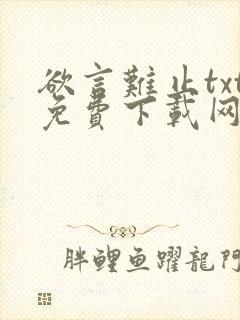 欲言難止txt
免費下載网
胖鲤鱼躍龍門